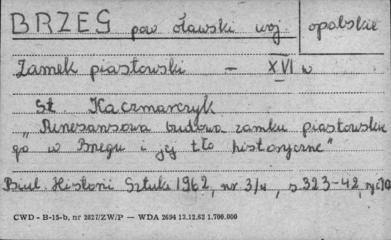 BRZEG pow oławski woj. opolskie
Zamek piastowski – XVI w
St. Kaczmarczyk
„Renesansowa budowa zamku piastowskie
go w Brzegu i jej tło historyczne"
Biul. Historii Sztuki 1962, nr 3/4, s. 323-42,
CWD - B-15-b, nr 2827/ZW/P — WDA 2694 12.12.62 1.700.000